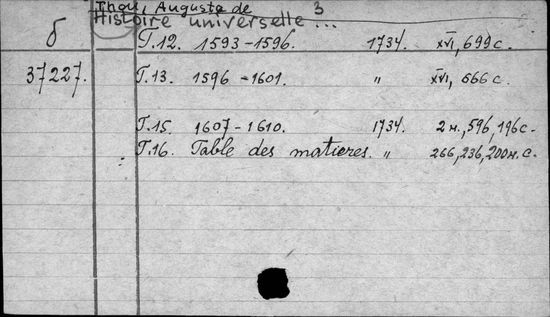 Thou, Auguste de 3
Histoire universelle ...
б Т.12. 1593-1596. 1734. XVI, 699 с.
37227. Т.13. 1596-1601. " XVI, 666 с.
Т.15. 1607-1610. 1734. 2 н., 596, 196 с.
Т.16. Table des matieres. " 266, 236, 200 н. с.